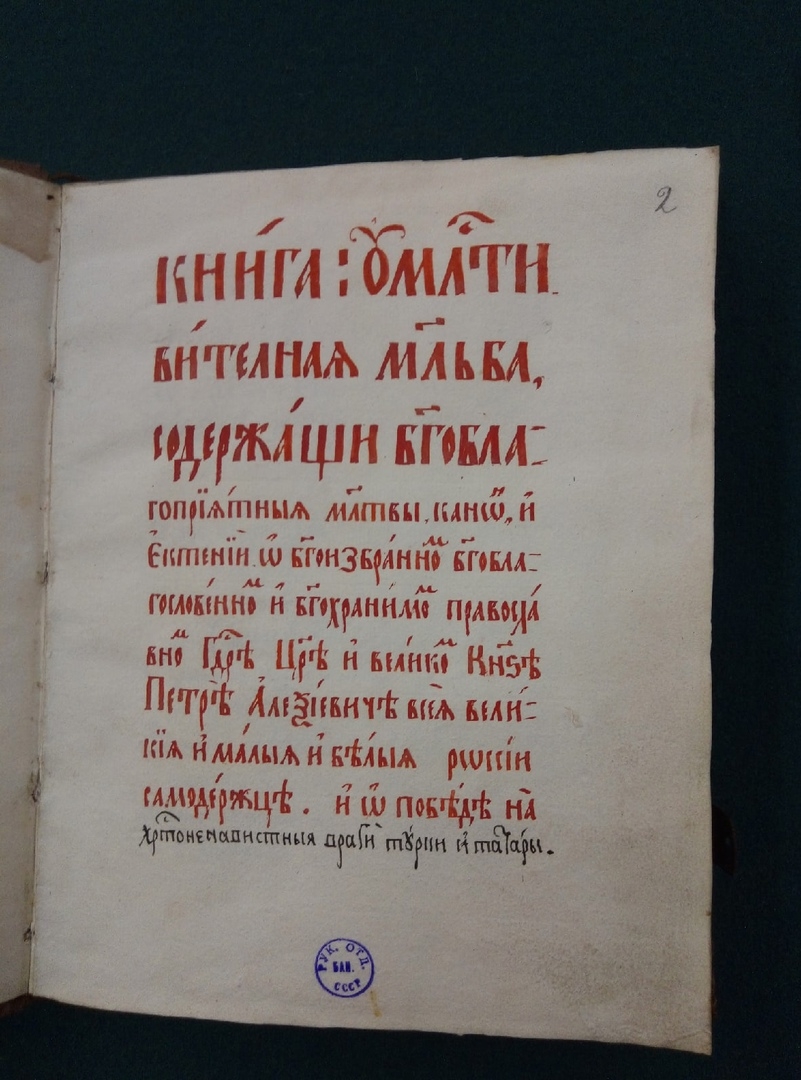 2
КНИ́ГА : Ѹ҆МЛⷭ҇ТИ
ВИ́ТЕЛНАЯ МЛ҃ЬБА,
СОДЕРЖА́ЩИ БГ҃ОБЛА-
гопрїѧ́тныѧ мл҃твы, кано́ѡ, и҆
Е҆ктенїи҆. ѡ҆ бг҃оизбра́нноⷨ бг҃обла-
гослове́нноⷨ и҆ бг҃охрани́моⷨ правосла́
вноⷨ Гдⷭ҇рѣ Цр҃ѣ и҆ вели́коⷨ Кн҃ѕѣ
Петрѣ̀ А҆леѯі́евичѣ всеѧ̀ вели́-
кїѧ и҆ ма́лыѧ и҆ бѣ́лыѧ рѡссіи
самоде́ржцѣ. и҆ ѡ҆ побѣ́дѣ на̀
хрⷭ҇тоненавистныѧ враги̑ ту́рки и҆ тата́ры.
РУК. ОТД.
БАН.
СССР